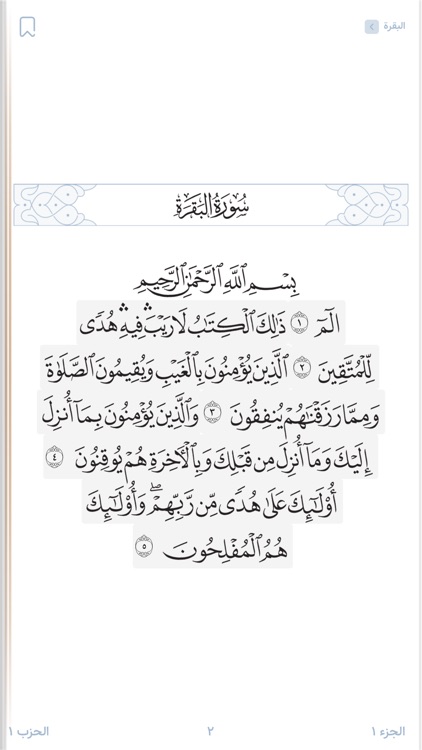 البقرة
سُورَةُ البَقَرَةِ
بِسْمِ ٱللَّهِ ٱلرَّحْمَٰنِ ٱلرَّحِيمِ
الٓمٓ ١ ذَٰلِكَ ٱلْكِتَٰبُ لَا رَيْبَۛ فِيهِۛ هُدًى
لِّلْمُتَّقِينَ ٢ ٱلَّذِينَ يُؤْمِنُونَ بِٱلْغَيْبِ وَيُقِيمُونَ ٱلصَّلَوٰةَ
وَمِمَّا رَزَقْنَٰهُمْ يُنفِقُونَ ٣ وَٱلَّذِينَ يُؤْمِنُونَ بِمَآ أُنزِلَ
إِلَيْكَ وَمَآ أُنزِلَ مِن قَبْلِكَ وَبِٱلْأٓخِرَةِ هُمْ يُوقِنُونَ ٤
أُو۟لَٰٓئِكَ عَلَىٰ هُدًى مِّن رَّبِّهِمْۖ وَأُو۟لَٰٓئِكَ
هُمُ ٱلْمُفْلِحُونَ ٥
الجزء ١
٢
الحزب ١